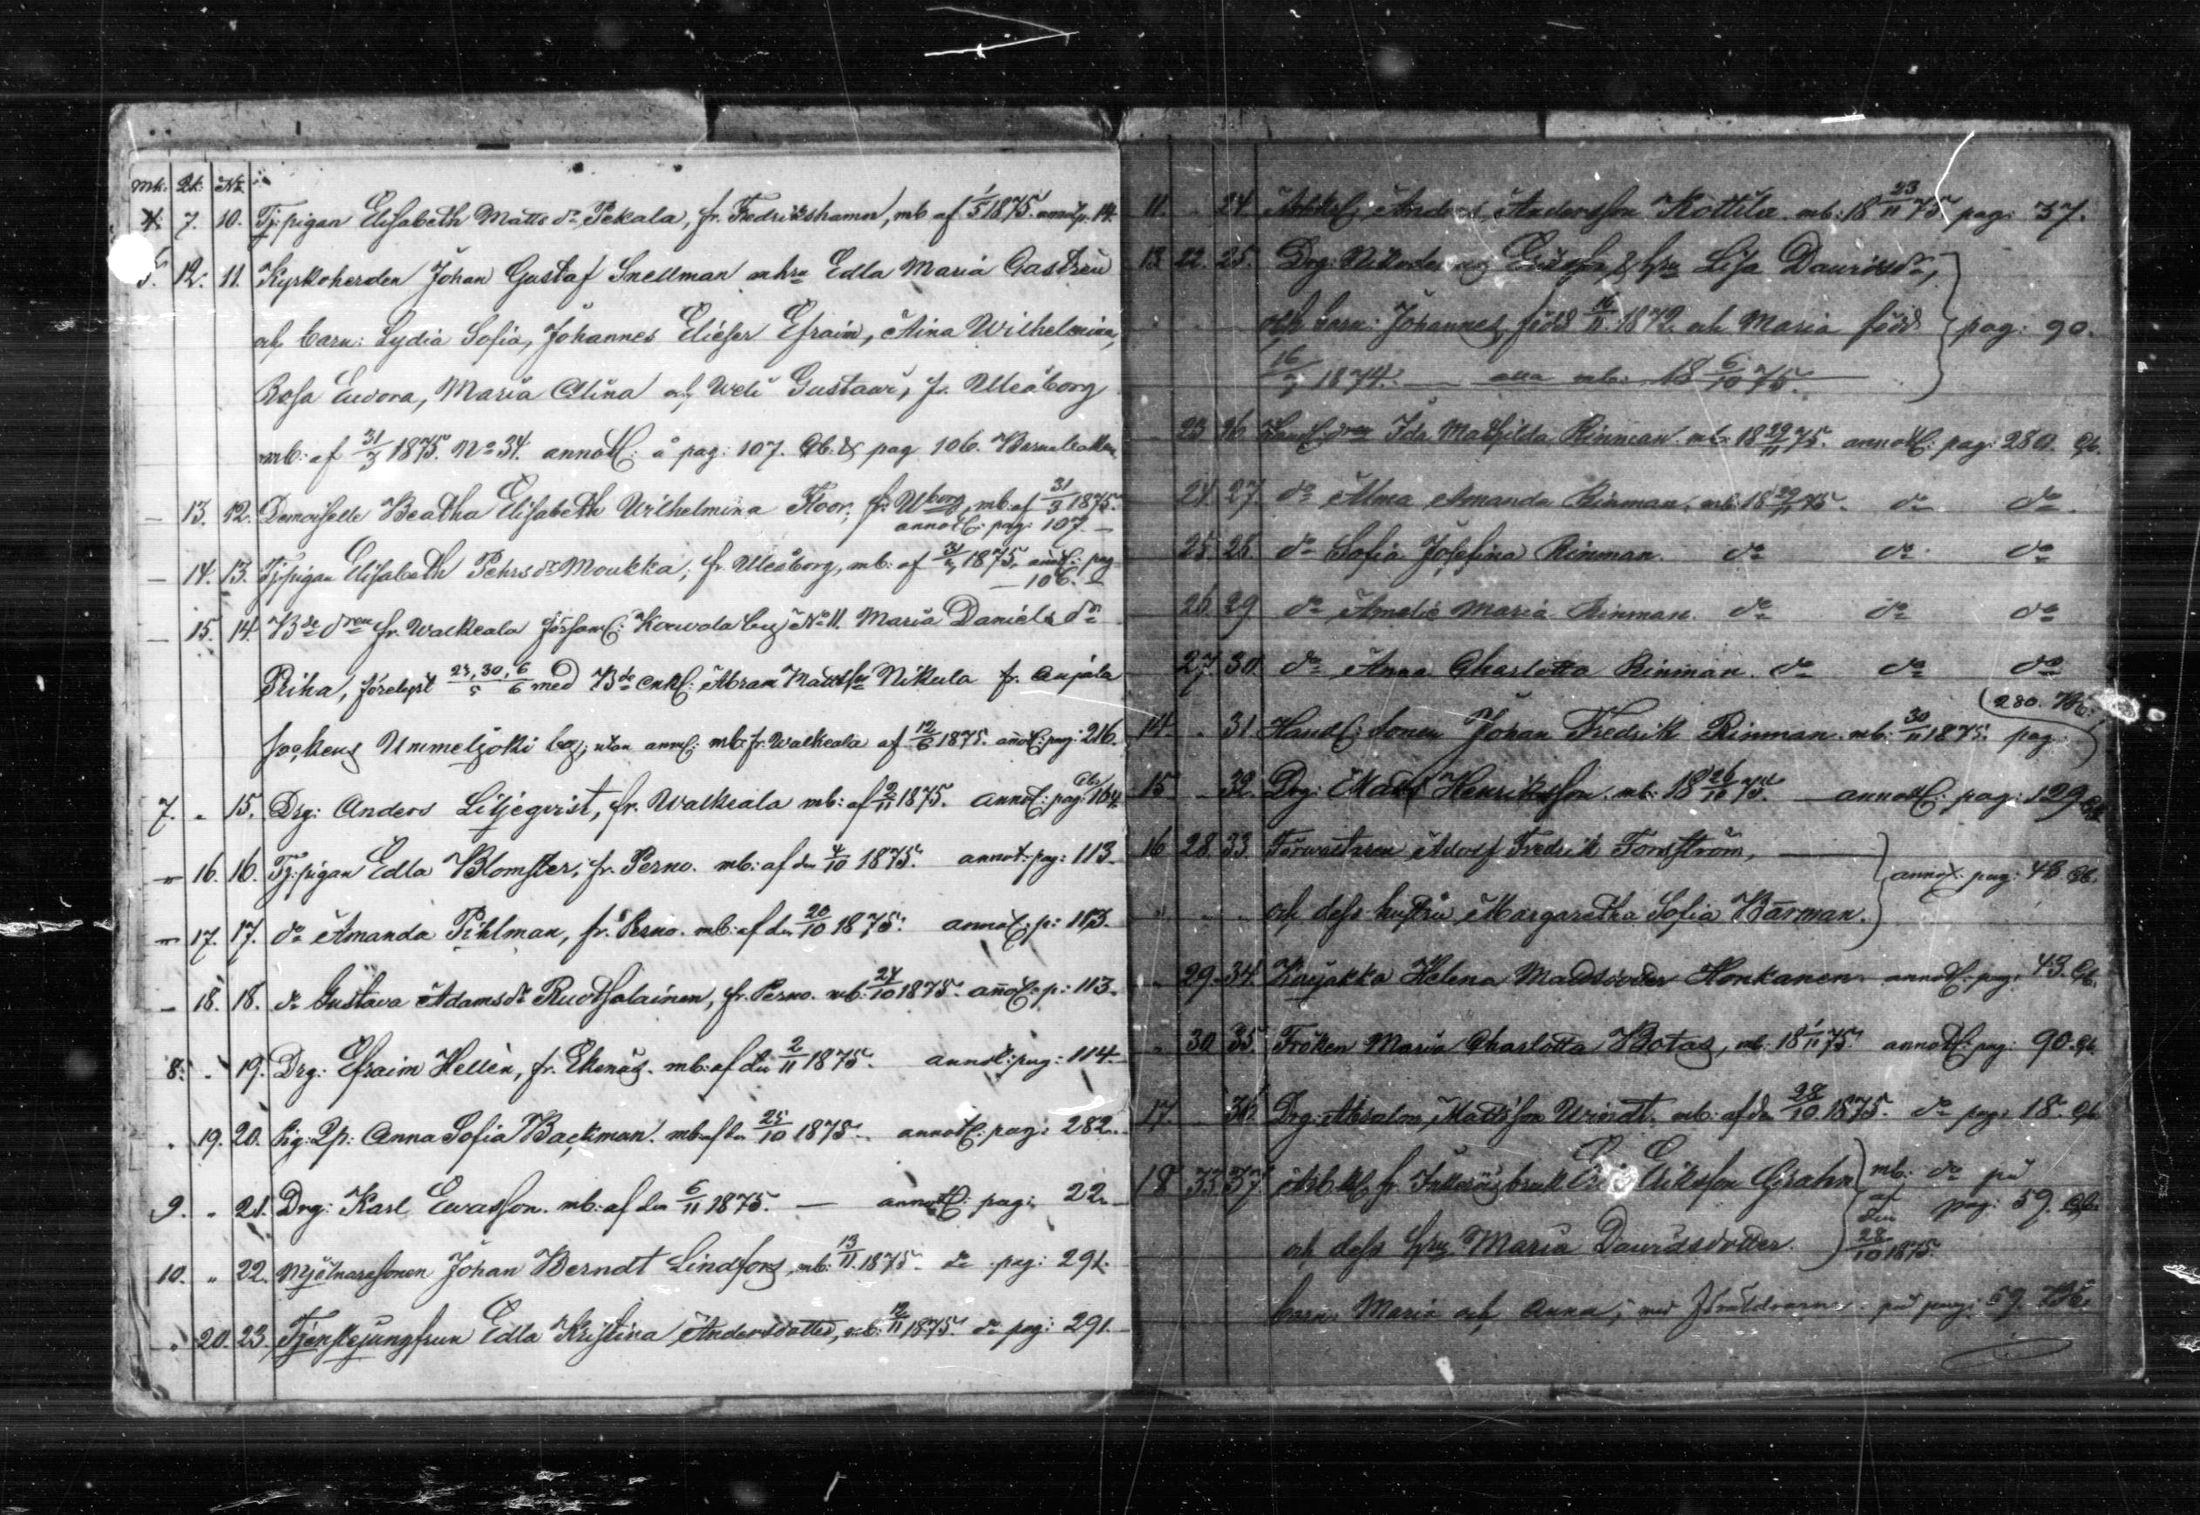 Mk: Qk: No
4. 7. 10. Tj: pigan Elisabeth Matts dr Pekala, fr. Fredrikshamn, mb af 1/5 1875. annot p. 14.
5. 12. 11. Kyrkoherden Johan Gustaf Snellman o hru Edla Maria Castrén
och barn: Lydia Sofia, Johannes Elieser Efraim, Aina Wilhelmina,
Rosa Eudora, Maria Alina och Weli Gustawi, fr. Uleåborg
mb: af 31/3 1875. No 34. annot: å pag: 107. Cb. & pag 106. Barnaboken
— 13. 12. Demoiselle Beatha Elisabeth Wilhelmina Floor; fr: Uborg, mb: af 31/3 1875.
annot: pag: 107. —
— 14. 13. Tj:pigan Elisabeth Pehrs dr Moukka; fr. Uleåborg, mb: af 31/3 1875, annot: pag
— 106. —
— 15. 14. Bde dren fr. Walkeala förs: Kouvola by No 11. Maria Daniels dr
Priha, förelyst 23, 30/5, 6/6 med Bde enkl: Abram Mattsson Nikula fr. Anjala
sockens Ummeljoki by, utan mb: fr. Walkeala af 12/6 1875. annot: pag: 216.
7. " 15. Drg: Anders Liljeqvist, fr. Walkeala mb: af 2/11 1875. annot: pag: 164
— 16. 16. Tj: pigan Edla Blomster, fr. Perno. mb: af den 4/10 1875. annot: pag: 113.
— 17. 17. do Amanda Pihlman, fr. Perno. mb: af den 20/10 1875. annot: p: 113.
— 18. 18. do Gustava Adams dr Ruotsalainen, fr. Perno. mb: 24/10 1875. annot: p: 113.
8. . 19. Drg: Efraim Hellén, fr. Ekenäs. mb: af den 2/11 1875. annot: pag: 114.
. 19. 20. Pig: Anna Sofia Backman. mb af den 25/10 1875. annot: pag: 282.
9. " 21. Drg: Karl Ewasson. mb: af den 6/11 1875. — annot: pag: 22.
10. " 22. Mjölnaresonen Johan Berndt Lindfors, mb: 13/11 1875. do pag: 291.
" 20. 23. Tjenstejungfrun Edla Kristina Andersdotter, mb: 12/11 1875. do pag: 291.
11. . 24 Anders Andersson Kottila mb: 18 23/11 75 pag: 37.
13. 22. 25. Drg: & hru Lisa Davidsdr,
och barn: Johannes född 16/11 1872 och Maria född pag: 90.
16/7 1874. — mb: 18 6/10 75.
23 26 Handl: dren Ida Mathilda Rinman. mb: 18 29/11 75. annot: pag: 280. Cb.
24 27 do Alma Amanda Rinman. mb: 18 29/11 75. do do
25 28 do Sofia Josefina Rinman. do do do
26 29 do Amelie Maria Rinman. do do do
27. 30 do Anna Charlotta Rinman. do do do
14. . 31 Handl: sonen Johan Fredrik Rinman. mb: 30/11 1875. pag: 280. Bb.
15 . 32 Drg: Mats Henriksson. mb: 18 26/10 75. — annot: pag: 129 Cb.
16 28. 33 Förvaltaren Adolf Fredrik Forsström, — annot: pag: 43 Cb.
" " " och dess hustru Margaretha Sofia Bärman.
. 29. 34. Karjakko Helena Madsdotter Honkanen annot: pag: 43. Cb.
" 30 35. Fröken Maria Charlotta Botas, mb: 18 1/11 75. annot: pag: 90. Cb.
17. 36. Drg: Absalon Mattsson Windt. mb: af den 28/10 1875. do pag: 18. Cb
18 33 37 Arb. kl fr. bruk Eriksson Grahn mb: do på
af den pag: 59. Cb.
och dess hru Maria Davidsdotter. 28/10 1875.
barn Maria och Anna; på pag: 59. Bb.